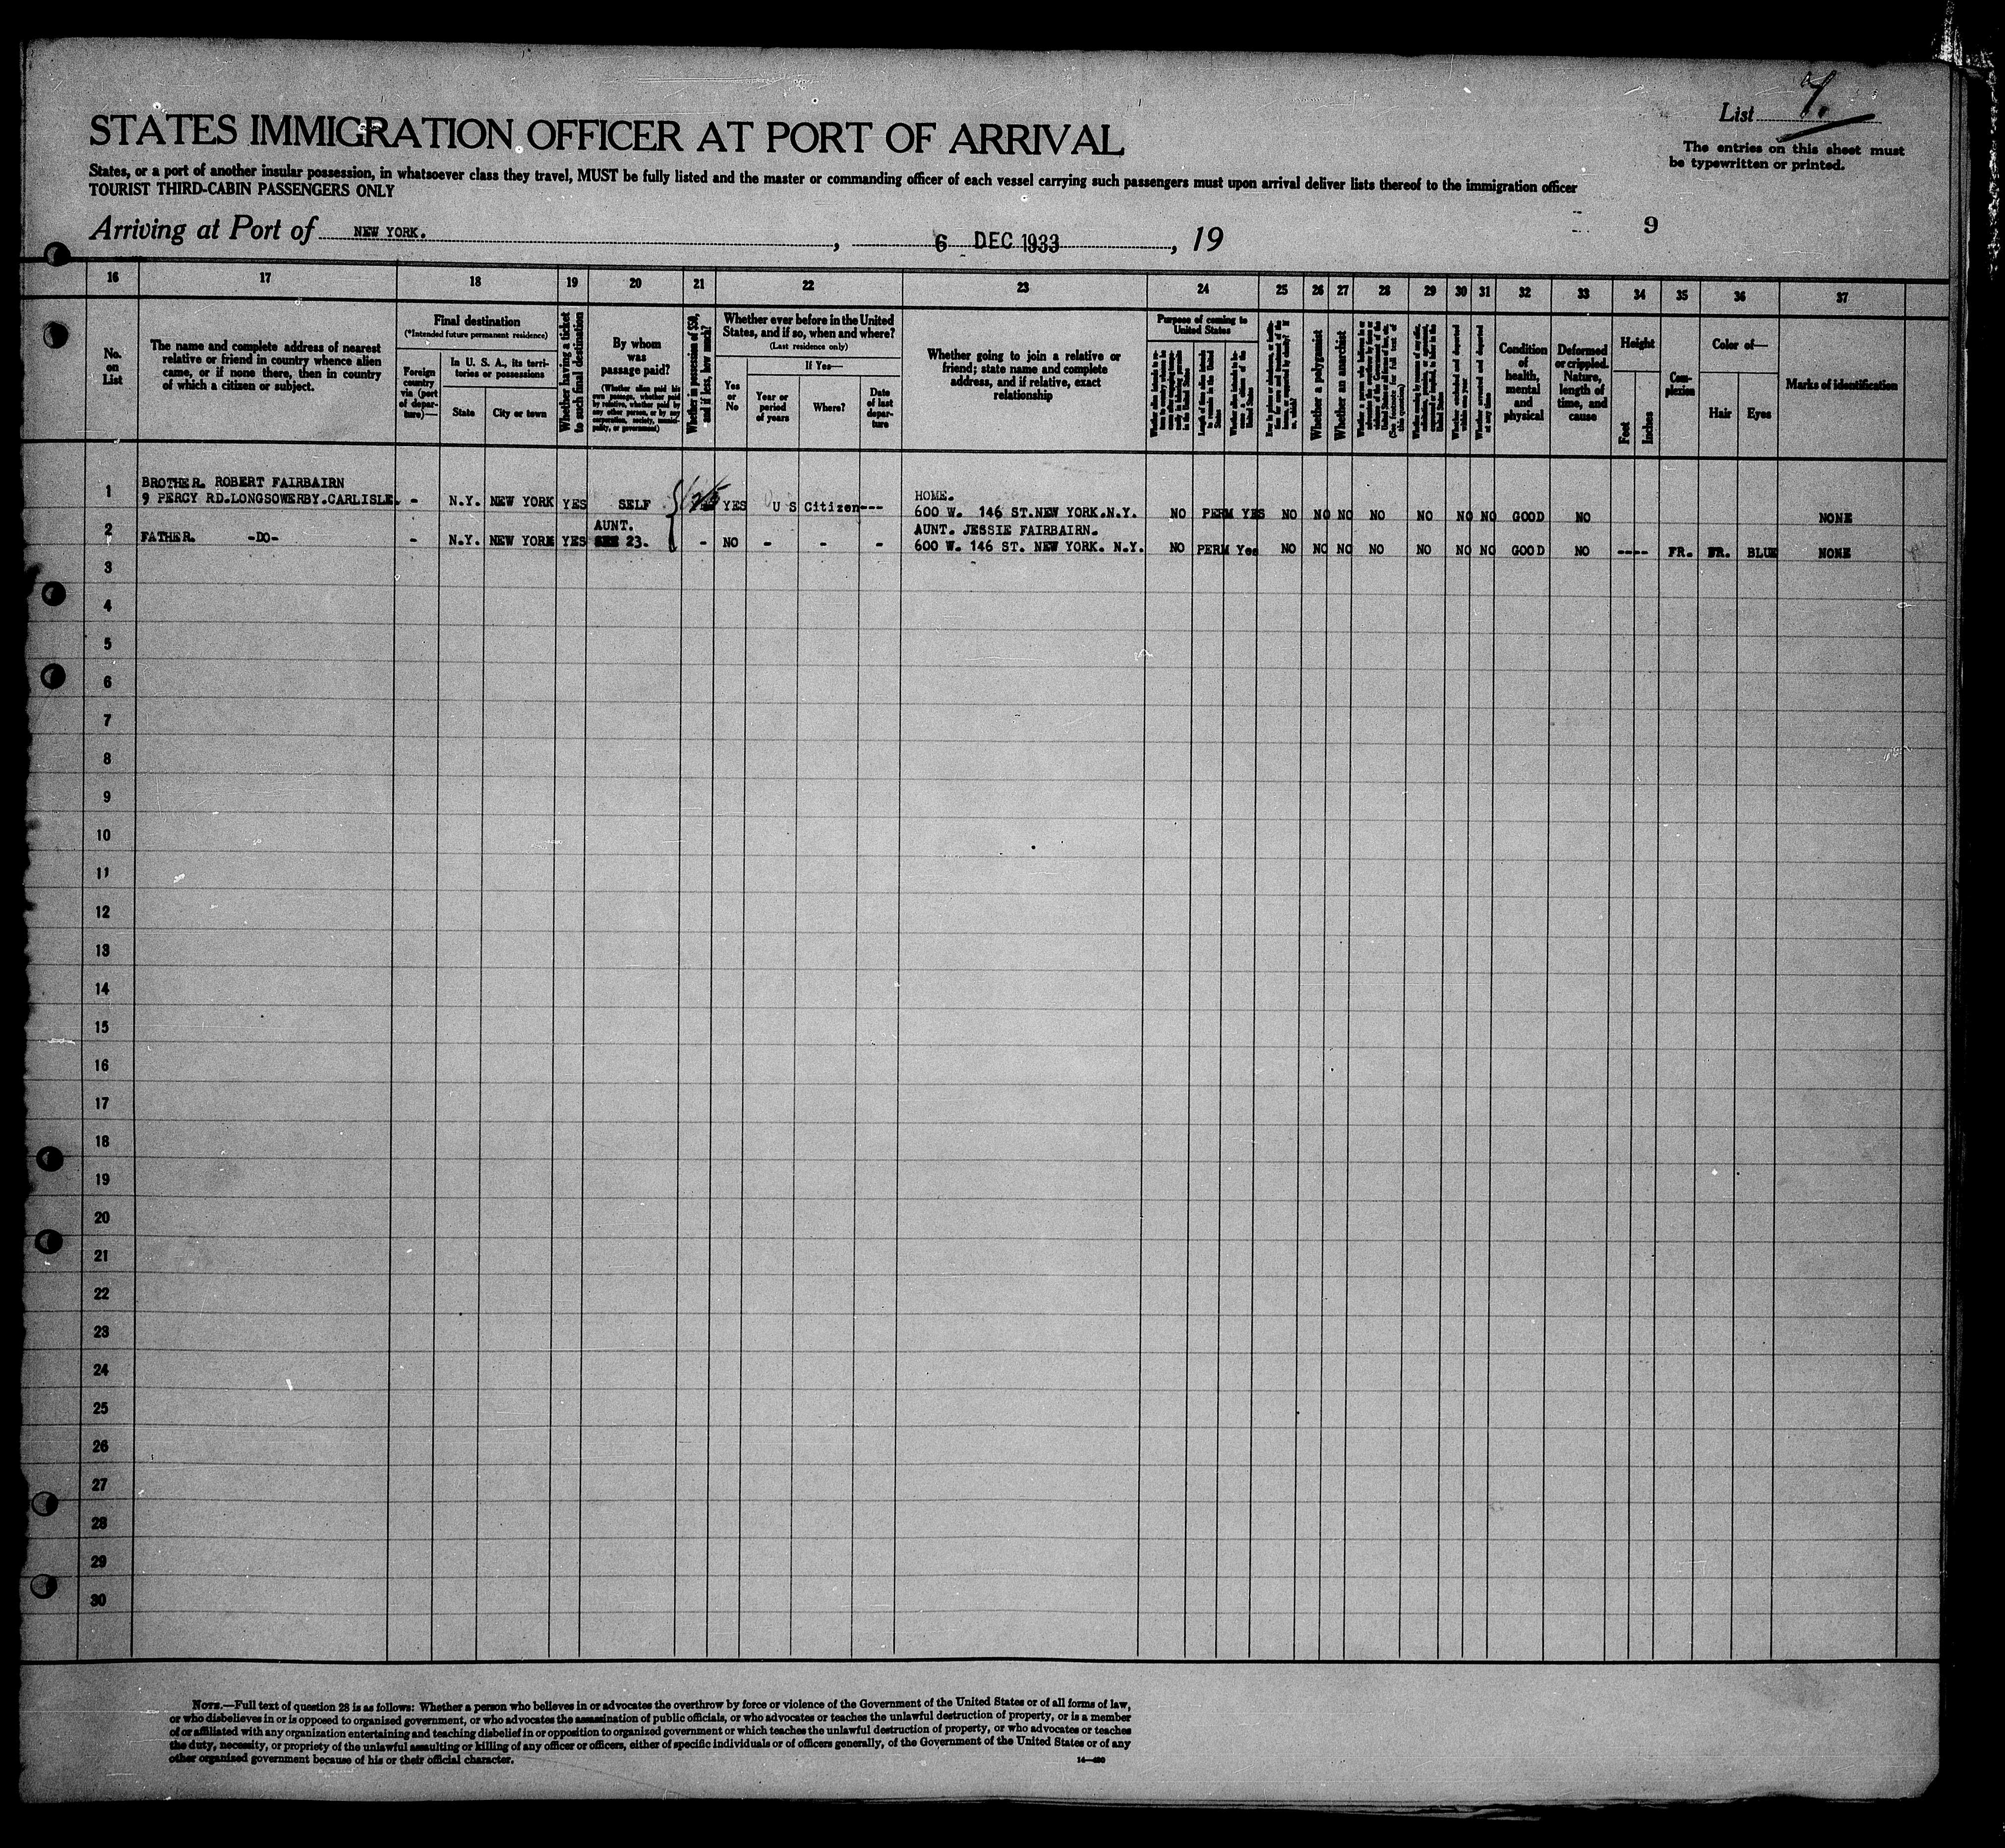 List 9.
STATES IMMIGRATION OFFICER AT PORT OF ARRIVAL
The entries on this sheet must
be typewritten or printed.
States, or a port of another insular possession, in whatsoever class they travel, MUST be fully listed and the master or commanding officer of each vessel carrying such passengers must upon arrival deliver lists thereof to the immigration officer
TOURIST THIRD-CABIN PASSENGERS ONLY
Arriving at Port of NEW YORK. , 6 DEC 1933 , 19
9
16 17 18 19 20 21 22 23 24 25 26 27 28 29 30 31 32 33 34 35 36 37
No.
on
List
The name and complete address of nearest
relative or friend in country whence alien
came, or if none there, then in country
of which a citizen or subject.
Final destination
(*Intended future permanent residence)
Foreign
country
via (port
of depar-
ture)—
In U. S. A., its terri-
tories or possessions
State
City or town
Whether having a ticket
to such final destination
By whom
was
passage paid?
(Whether alien paid his
own passage, whether paid
by relative, whether paid by
any other person, or by any
corporation, society, munici-
pality, or government)
Whether in possession of $50,
and if less, how much?
Whether ever before in the United
States, and if so, when and where?
(Last residence only)
Yes
or
No
If Yes—
Year or
period
of years
Where?
Date
of last
depar-
ture
Whether going to join a relative or
friend; state name and complete
address, and if relative, exact
relationship
Purpose of coming to
United States
Length of time alien intends
to remain in the United
States
Whether a polygamist
Whether an anarchist
(See footnote for full text of
this question)
Whether excluded and deported
within one year
Whether arrested and deported
at any time
Condition
of
health,
mental
and
physical
Deformed
or crippled.
Nature,
length of
time, and
cause
Height
Feet
Inches
Com-
plexion
Color of—
Hair
Eyes
Marks of identification
BROTHER. ROBERT FAIRBAIRN
1 9 PERCY RD.LONGSOWERBY.CARLISLE. - N.Y. NEW YORK YES SELF YES U S Citizen---
HOME.
600 W. 146 ST.NEW YORK.N.Y. NO PERM YES NO NO NO NO NO NO NO GOOD NO NONE
2 FATHER. -DO- - N.Y. NEW YORK YES
AUNT.
23. - NO - - -
AUNT. JESSIE FAIRBAIRN.
600 W. 146 ST. NEW YORK. N.Y. NO PERM Yes NO NO NO NO NO NO NO GOOD NO ---- FR. FR. BLUE NONE
3
4
5
6
7
8
9
10
11
12
13
14
15
16
17
18
19
20
21
22
23
24
25
26
27
28
29
30
NOTE.—Full text of question 28 is as follows: Whether a person who believes in or advocates the overthrow by force or violence of the Government of the United States or of all forms of law,
or who disbelieves in or is opposed to organized government, or who advocates the assassination of public officials, or who advocates or teaches the unlawful destruction of property, or is a member
of or affiliated with any organization entertaining and teaching disbelief in or opposition to organized government or which teaches the unlawful destruction of property, or who advocates or teaches
the duty, necessity, or propriety of the unlawful assaulting or killing of any officer or officers, either of specific individuals or of officers generally, of the Government of the United States or of any
other organized government because of his or their official character.
14—490